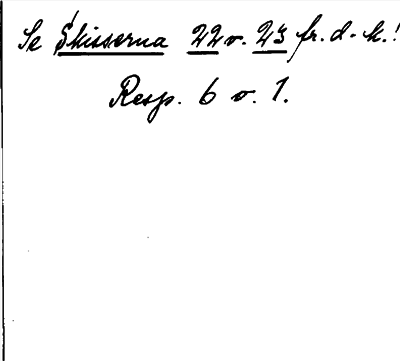 Se Skisserna 22 o. 23 fr. d. k.!
Resp. 6 o. 1.